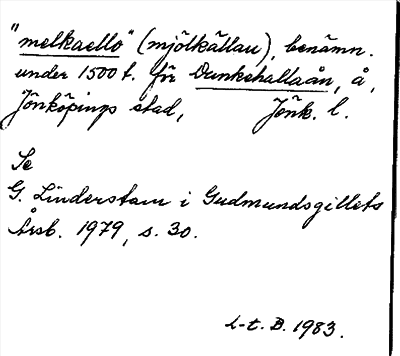 "melkaello" (mjölkkällau), benämn.
under 1500 t. för Dunkehallaån, å,
Jönköpings stad, Jönk. l.
Se
G. Linderstam i Gudmundsgillets
Årsb. 1979, s. 30.
l-t. B. 1983.